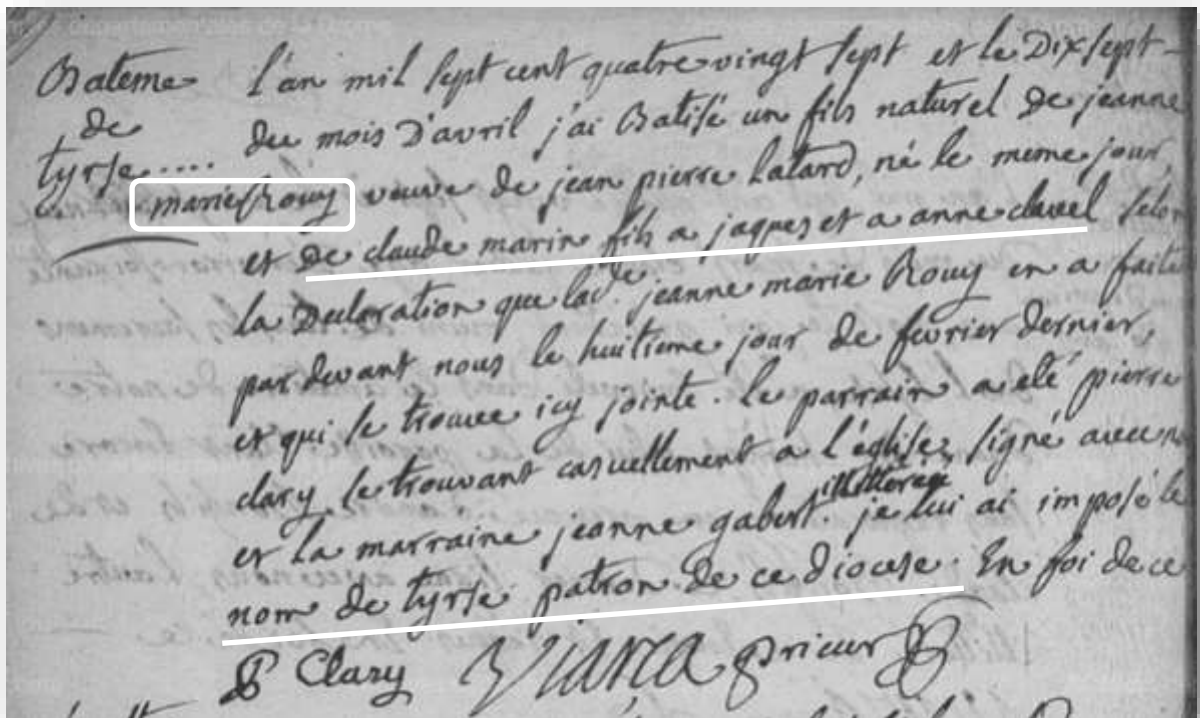 Bateme
de
tyrse.....
l'an mil sept cent quatre vingt sept et le Dixsept
du mois D'avril j'ai Batisé un fils naturel de jeanne
marie Rouy veuve de jean pierre Latard, né le meme jour,
et de claude marin fils a jaques et a anne clavel selon
la Declaration que lad.e jeanne marie Rouy en a faite
par devant nous le huitieme jour de fevrier dernier,
et qui se trouve icy jointe. le parrain a eté pierre
clary se trouvant casuellement a l'église, signé avec n
et la marraine jeanne gabert. illitérée je lui ai imposé le
nom de tyrse patron de ce diocese. En foi de ce
P Clary prieur